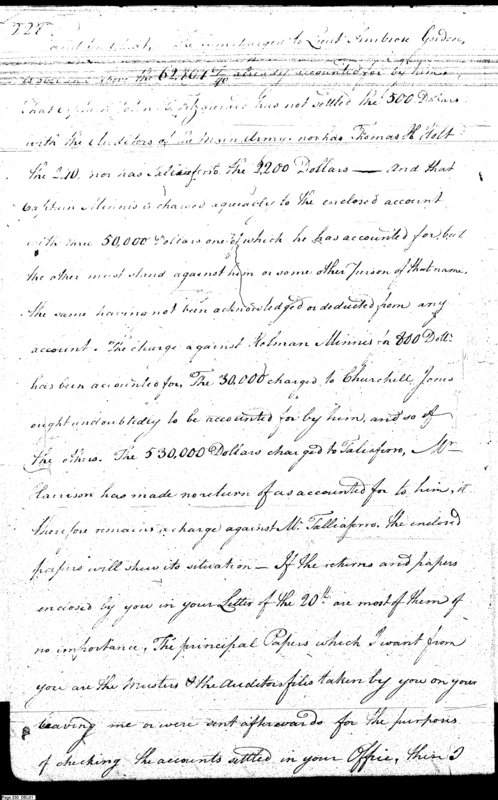 227
charged to Lieut Ambrose Gordon,
the 62.101 already accounted for by him
That Captain John has not settled the 500 Dollars
with the Auditors of the Main Army nor has Thomas H Holt
the 210, nor has Taliaferro, the 2200 Dollars — And that
Captain Minnis is charged agreeably to the enclosed account
with three 50,000 Dollars one of which he has accounted for, but
the other must stand against him or some other Person of that name,
the same having not been acknowledged or deducted from any
account. The charge against Holman Minnis for 800 Dolls
has been accounted for, The 30,000 charged to Churchill Jones
ought undoubtedly to be accounted for by him, and so of
the others. The 530,000 Dollars charged to Taliaferro, Mr
Harrison has made no return of as accounted for to him, it
therefore remains a charge against Mr. Talliaferro. The enclosed
papers will shew its situation — If the returns and papers
enclosed by you in your Letter of the 20th. are most of them of
no importance, The principal Papers which I want from
you are the Musters & the Auditors files taken by you on your
leaving me or were sent afterwards for the purpose
of checking the accounts settled in your Office, then I
Page 230 DBL31